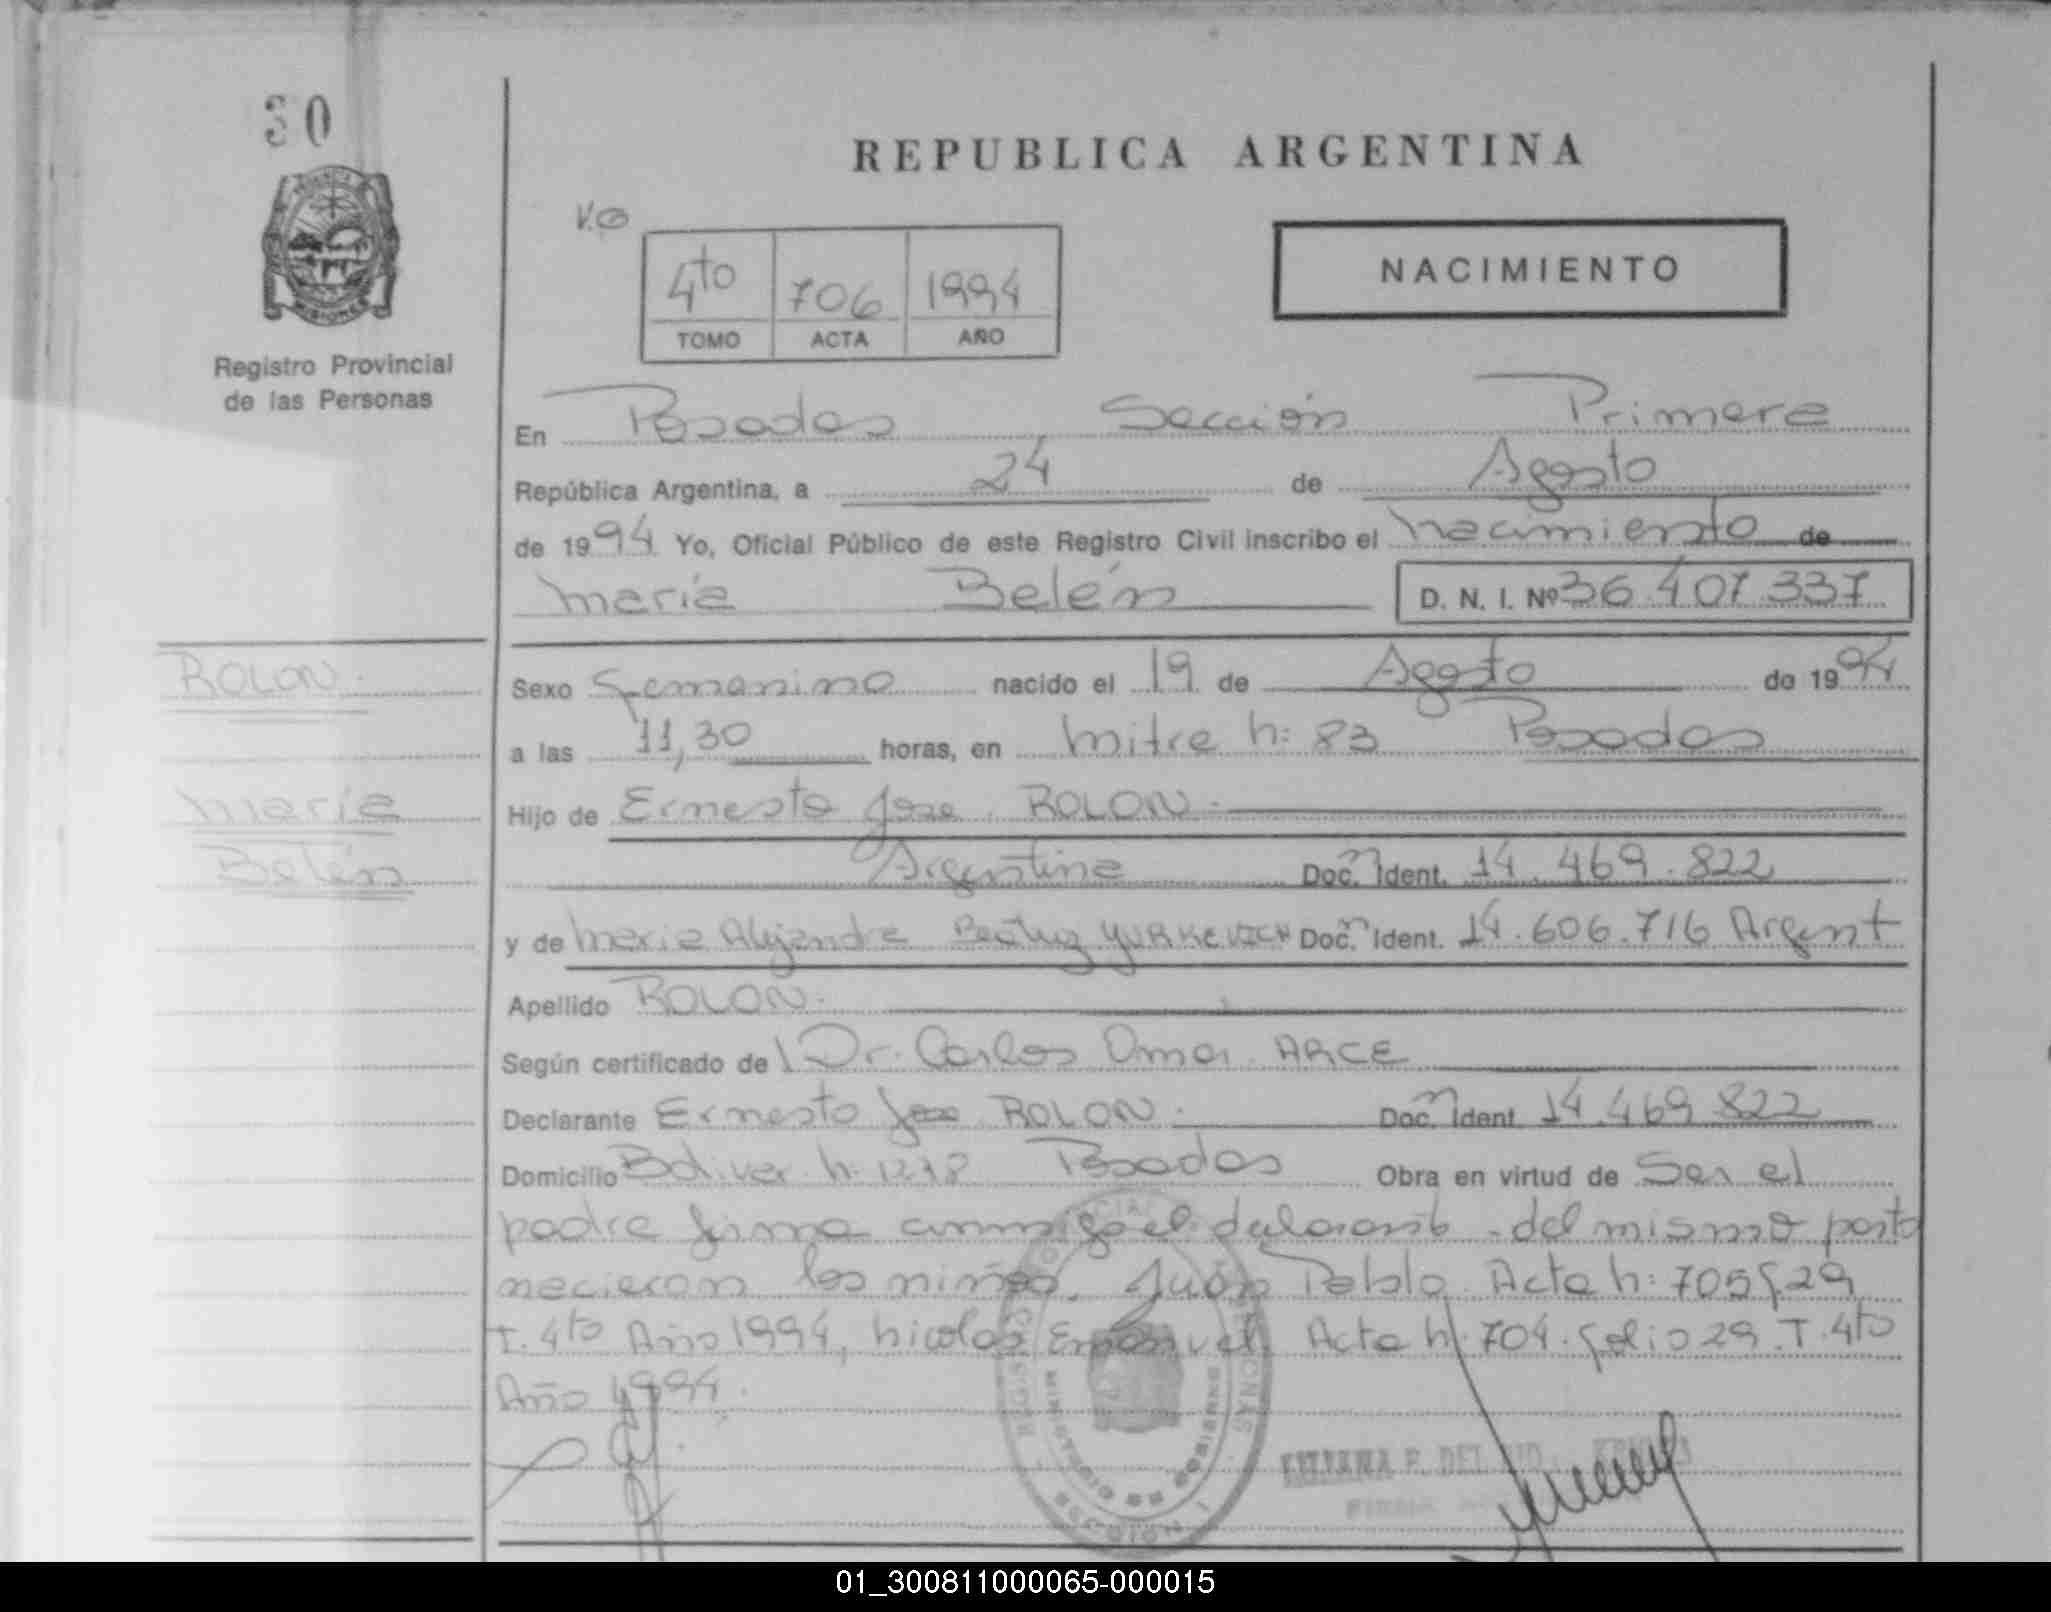 30
REPUBLICA ARGENTINA
NACIMIENTO
4to 706 1994
TOMO ACTA AÑO
MISIONES
Registro Provincial
de las Personas
En Posadas Sección Primera
República Argentina, a 24 de Agosto
de 1994 Yo, Oficial Público de este Registro Civil inscribo el nacimiento de
María Belén D. N. I. Nº 36.407.337
ROLON
Sexo Femenino nacido el 19 de Agosto de 1994
a las 11,30 horas, en Mitre N: 83 Posadas
María
Hijo de Ernesto Jose ROLON
Belén
Argentina Doc. Ident. 14.469.822
y de María Alejandra Beatriz YURKEVICH Doc. Ident. 14.606.716 Argent
Apellido ROLON
Según certificado de Dr. Carlos Omar ARCE
Declarante Ernesto Jose ROLON Doc. Ident. 14.469.822
Domicilio Bolivar N: Posadas Obra en virtud de Ser el
padre firma conmigo el declarante. del mismo parto
nacieron los niños. Juan Pablo Acta N: 705 f 29
T. 4to Año 1994, Nicolas Emanuel Acta N: 704. folio 29. T. 4to
Año 1994.
MINISTERIO DE GOBIERNO
SECCION 1
01_300811000065-000015